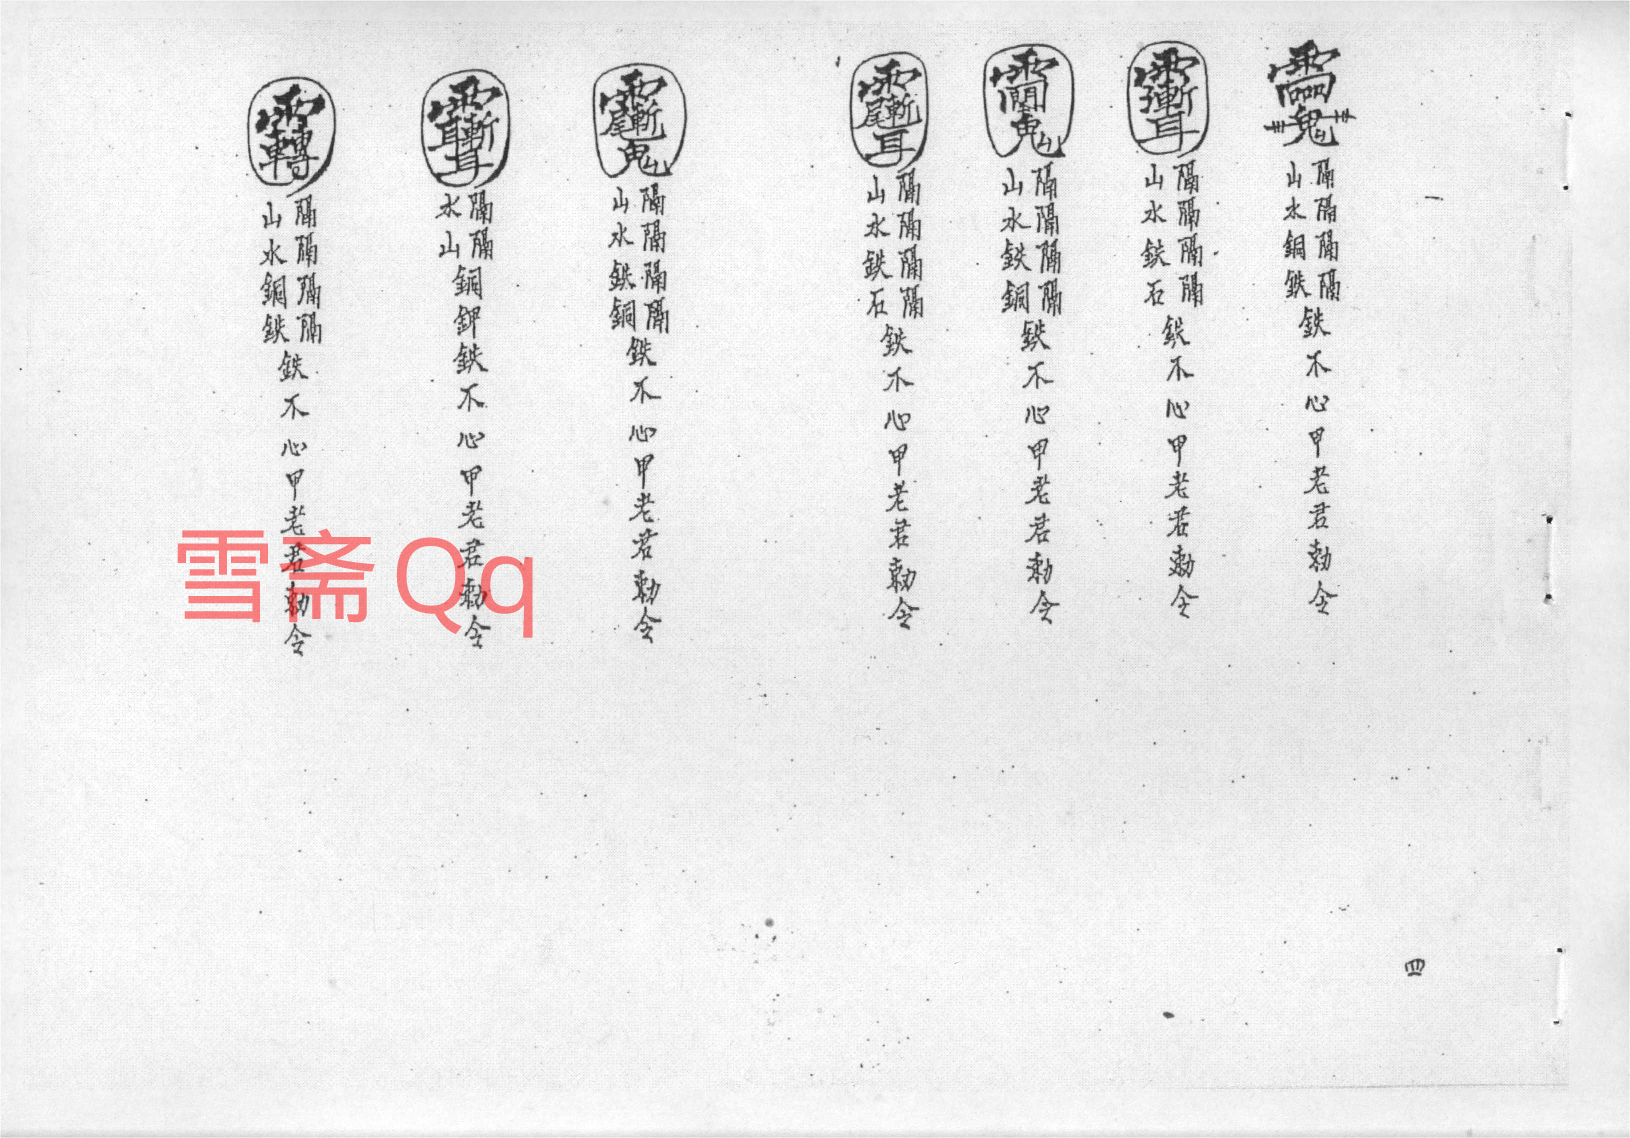 隔山隔水隔銅隔鉄鉄不心甲老君勅令
隔山隔水隔鉄隔石鉄不心甲老君勅令
隔山隔水隔鉄隔銅鉄不心甲老君勅令
隔山隔水隔鉄隔石鉄不心甲老君勅令
隔山隔水隔鉄隔銅鉄不心甲老君勅令
隔水隔山銅鉀鉄不心甲老君勅令
隔山隔水隔銅隔鉄鉄不心甲老君勅令
四
雪斋Qq